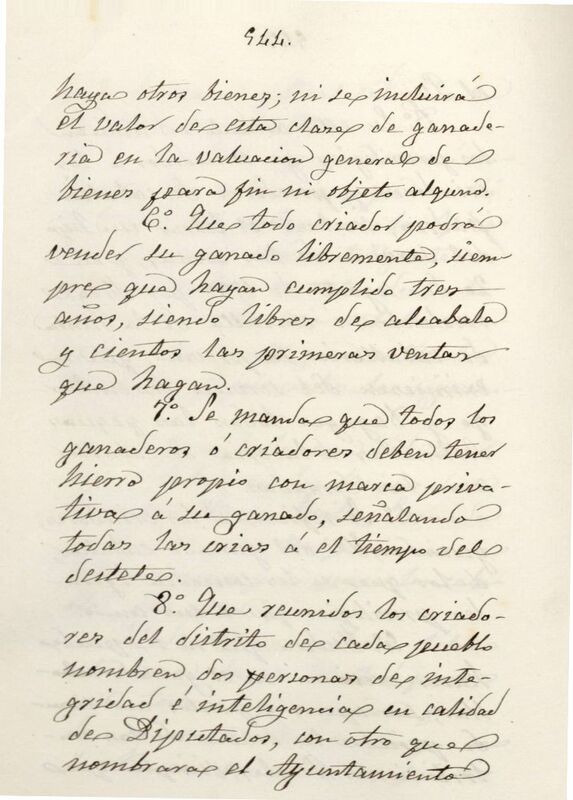 544.
haya otros bienes; ni se incluirá
el valor de esta clase de ganade-
ria en la valuacion general de
bienes para fin ni objeto alguno.
6.º Que todo criador podrá
vender su ganado libremente, siem
pre que hayan cumplido tres
años, siendo libres de alcabala
y cientos las primeras ventas
que hagan.
7.º Se manda que todos los
ganaderos ó criadores deben tener
hierro propio con marca priva-
tiva á su ganado, señalando
todas las crias á el tiempo del
destete.
8.º Que reunidos los criado-
res del distrito de cada pueblo
nombren dos personas de inte-
gridad é inteligencia en calidad
de Diputados, con otro que
nombrara el Ayuntamiento